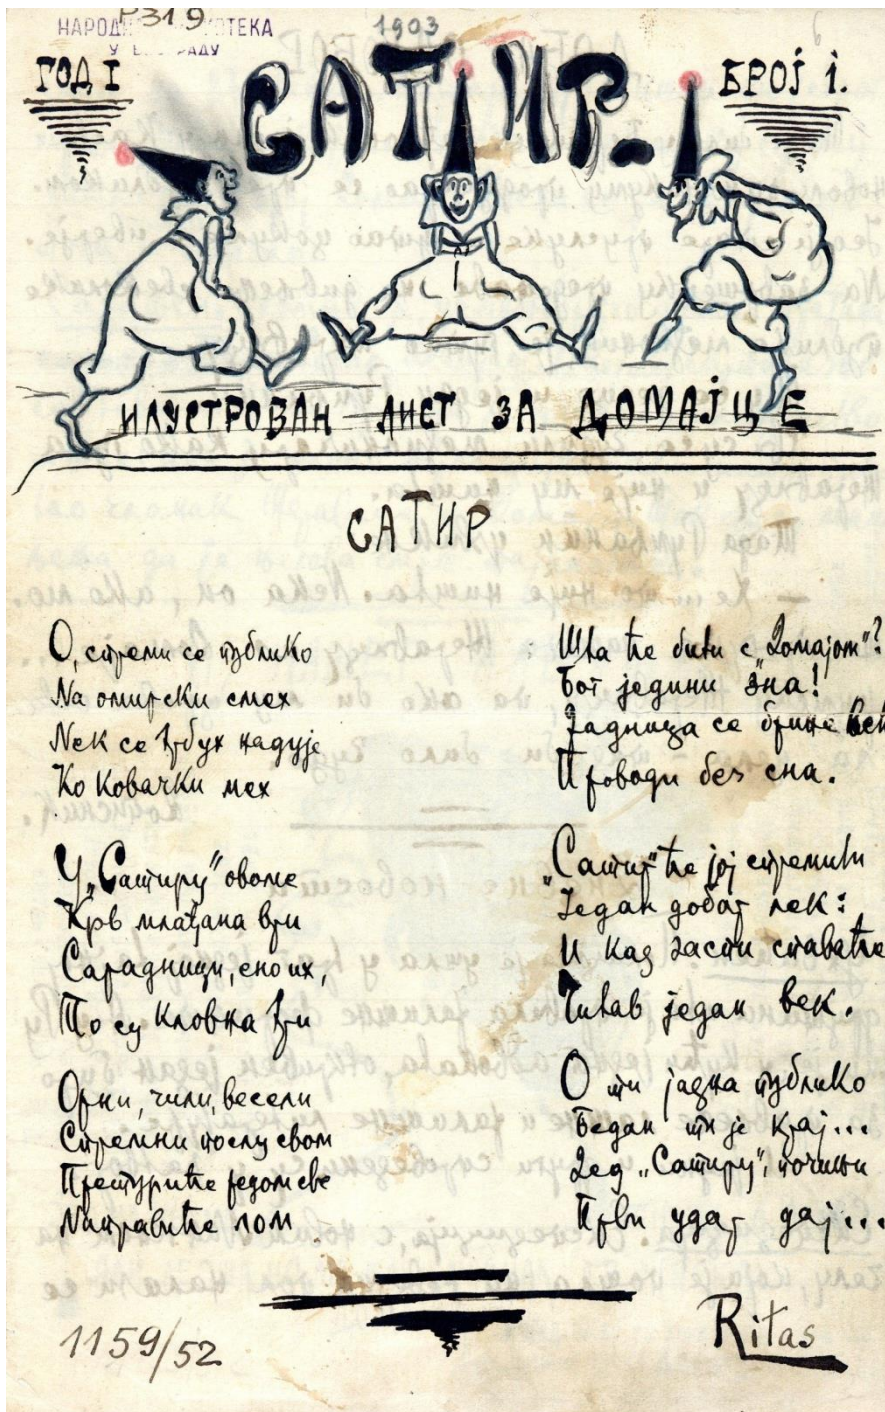 P319
НАРОДНА БИБЛИОТЕКА
У БЕОГРАДУ
1903
ГОД I
САТИР.
БРОЈ 1.
ИЛУСТРОВАН ЛИСТ ЗА ДОМАЈЦЕ
САТИР
О, спреми се публико
Na омирски смех
Nек се трбух надује
Ко ковачки мех
У „Сатиру“ овоме
Крв млађана ври
Сарадници, ено их,
То су кловна три
Орни, чили, весели
Спремни послу свом
Претуриће редом све
Направиће лом
Шта ће бити с „Домајом“?
Бог једини зна!
Задница се брине већ
Проводи без сна.
„Сатир“ ће јој спремити
Један добар лек:
И кад заспи спаваће
Читав један век.
О ти јадна публико
Бедан ти је крај...
Дед „Сатиру“, почињи
Први удар дај...
1159/52
Ritas